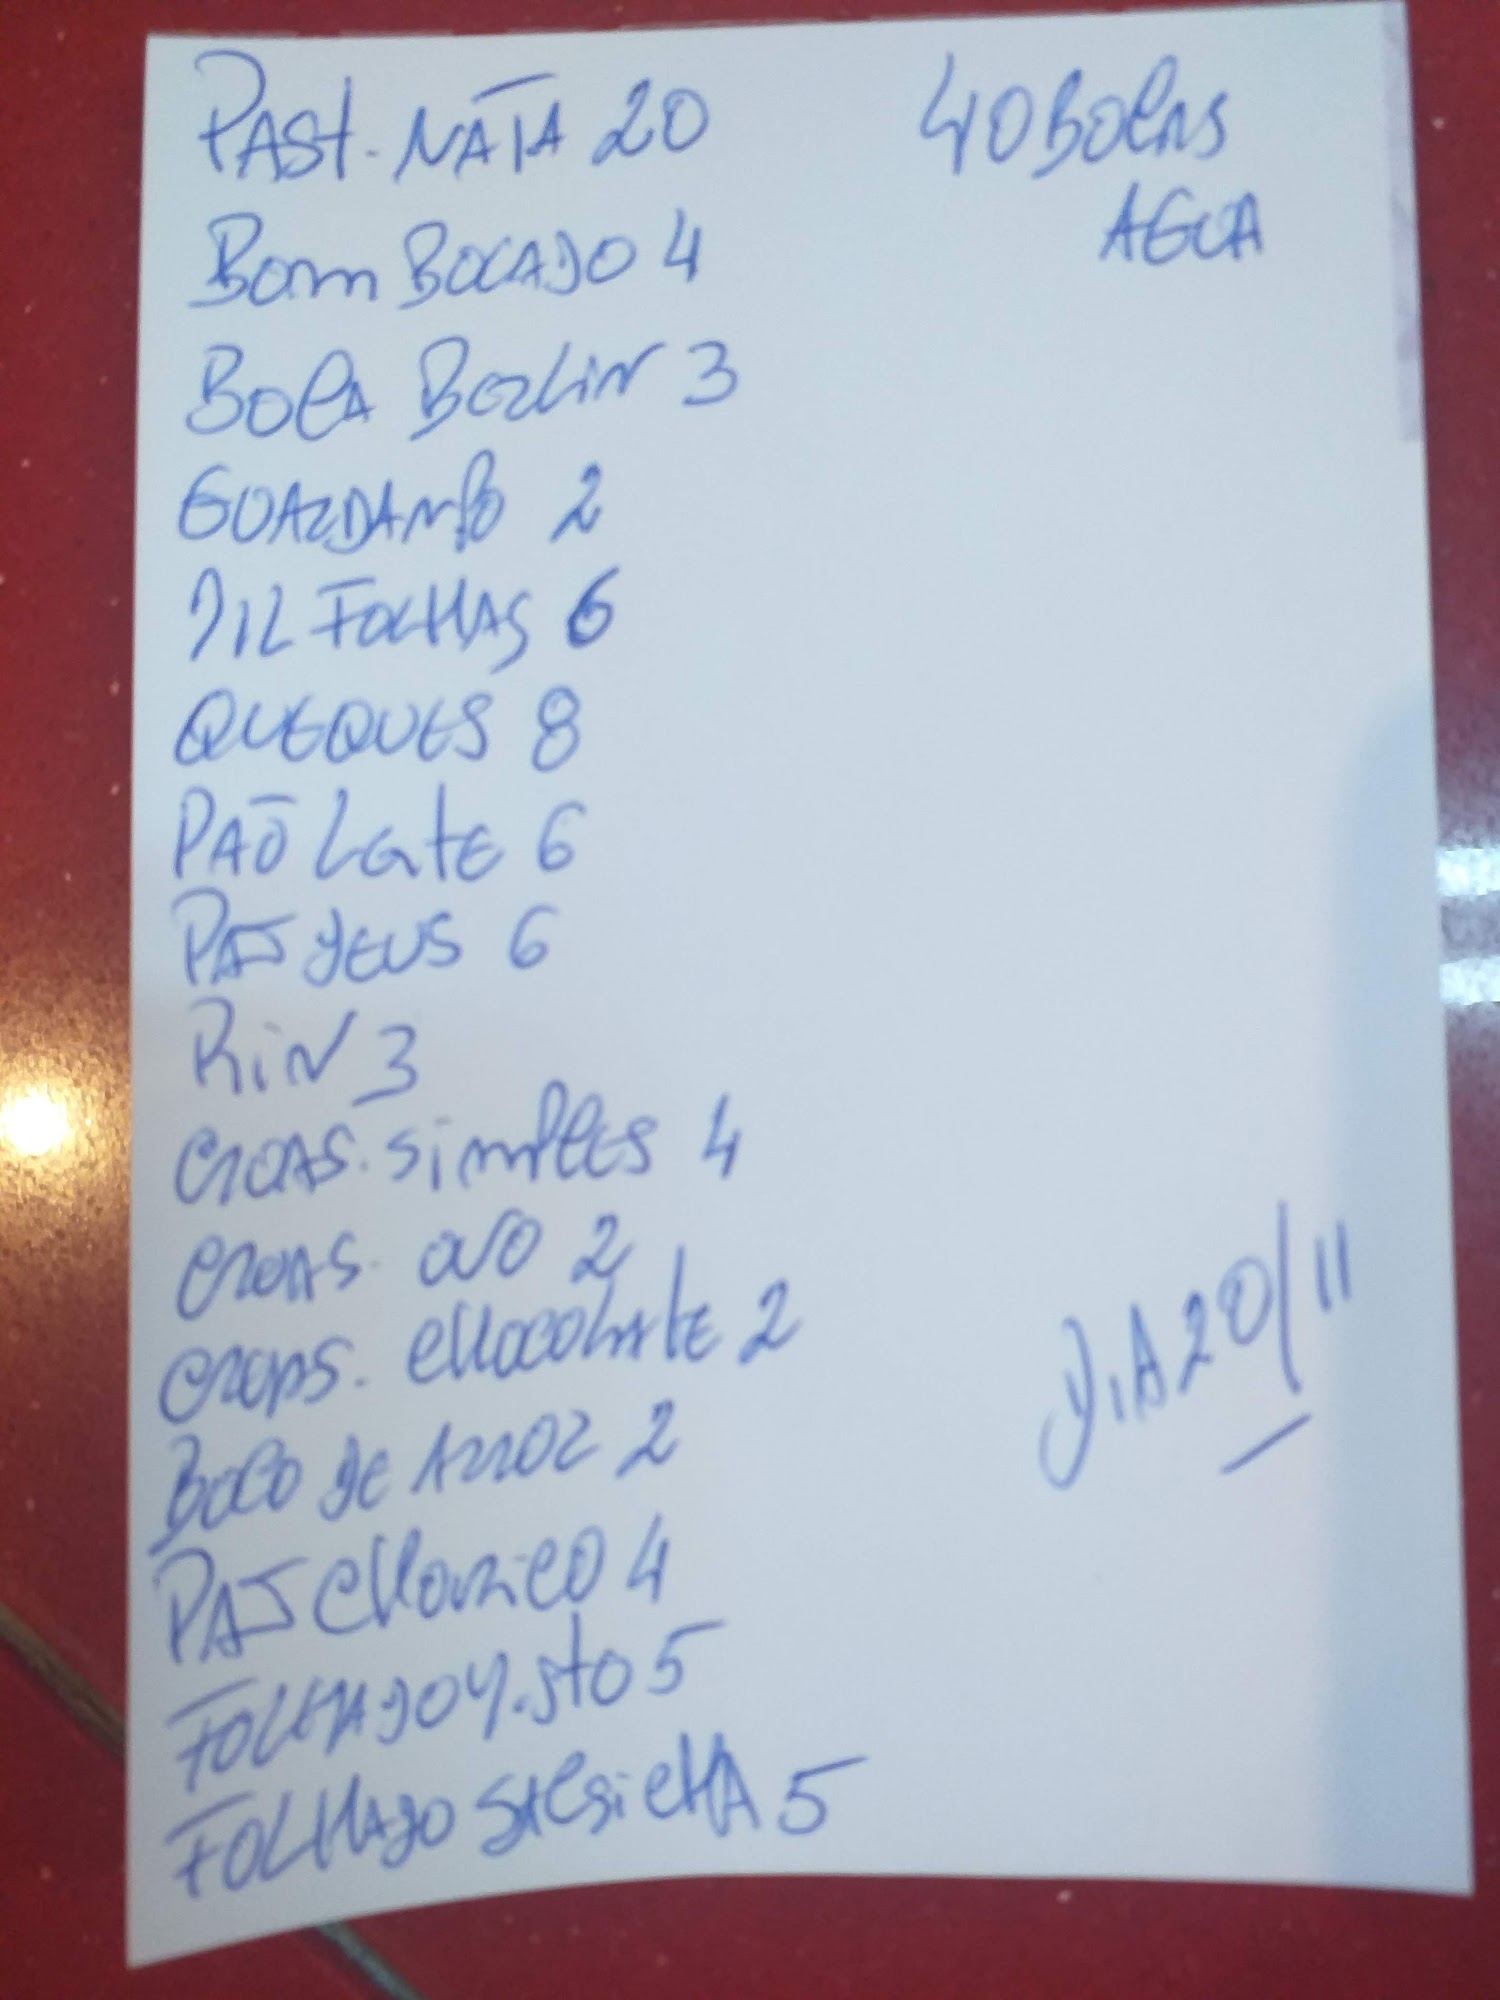 PAST. NATA 20
BOM BOCADO 4
BOLA BERLIN 3
GUARDANAPO 2
MIL FOLHAS 6
QUEQUES 8
PAÕ LEITE 6
PAS DEUS 6
RIN 3
CROAS. SIMPLES 4
CROAS. OVO 2
CROAS. CHOCOLATE 2
BOLO DE ARROZ 2
PAS CHOURICO 4
FOLHADO MISTO 5
FOLHADO SALSICHA 5
40 BOLAS
AGUA
DIA 20/11